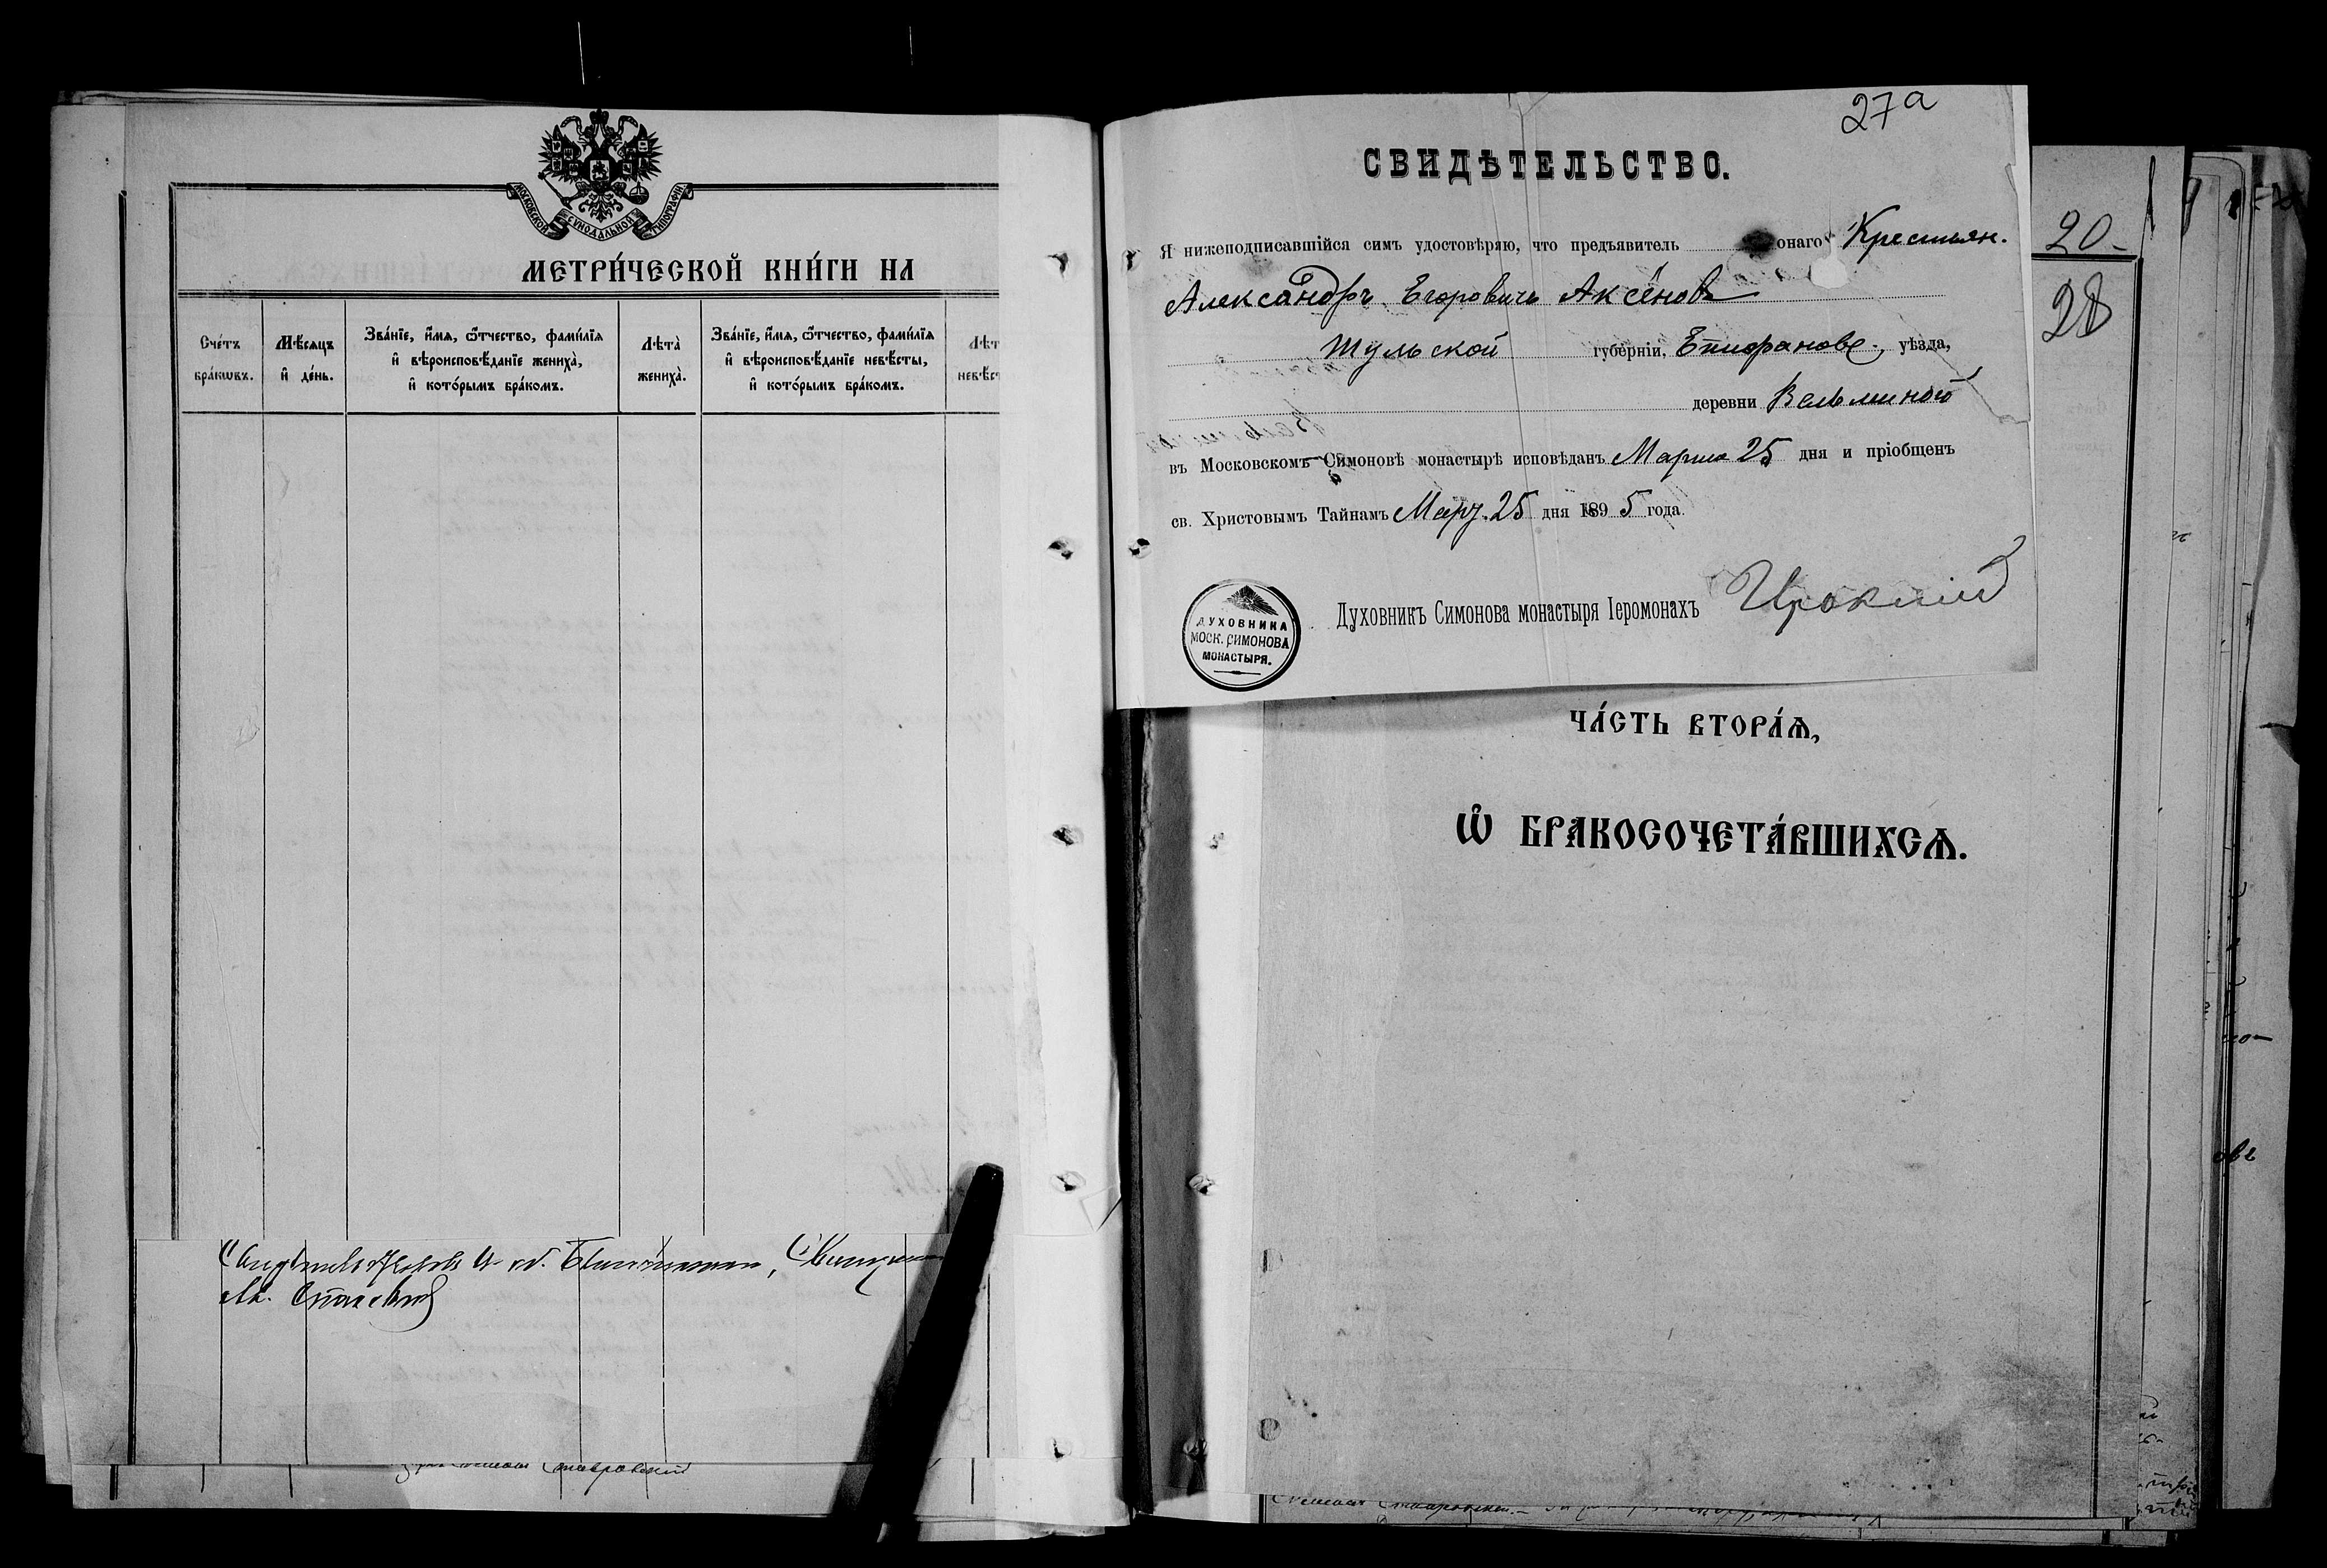 МОСКОВСКОЙ СУНОДАЛЬНОЙ ТИПОГРАФІИ
МЕТРИ́ЧЕСКОЙ КНИ́ГИ НА
Сче́тъ бра́кωвъ.
Мѣ́сяцъ и҆ де́нь.
Зва́нїе, и҆́мѧ, ѻ҆́тчество, фами́лїѧ
и҆ вѣроисповѣ́данїе жениха̀,
и҆ кото́рымъ бра́комъ.
Лѣта̀
жениха̀.
Зва́нїе, и҆́мѧ, ѻ҆́тчество, фами́лїѧ
и҆ вѣроисповѣ́данїе невѣ́сты,
и҆ кото́рымъ бра́комъ.
Лѣт
невѣ́ст
27а
СВИДѢТЕЛЬСТВО.
Я нижеподписавшійся симъ удостовѣряю, что предъявитель онаго Крестьян.
Александръ Егоровичъ Аксёновъ
Тульской губерніи, Епифановс. уѣзда,
деревни
въ Московскомъ Симоновѣ монастырѣ исповѣданъ Марта 25 дня и пріобщенъ
св. Христовымъ Тайнамъ Мар. 25 дня 1895 года
Духовникъ Симонова монастыря Іеромонахъ
ДУХОВНИКА
МОСК. СИМОНОВА
МОНАСТЫРЯ.
20
28
ЧА́СТЬ ВТОРА́Ѧ,
Ѡ҆ БРАКОСОЧЕТА́ВШИХСѦ.